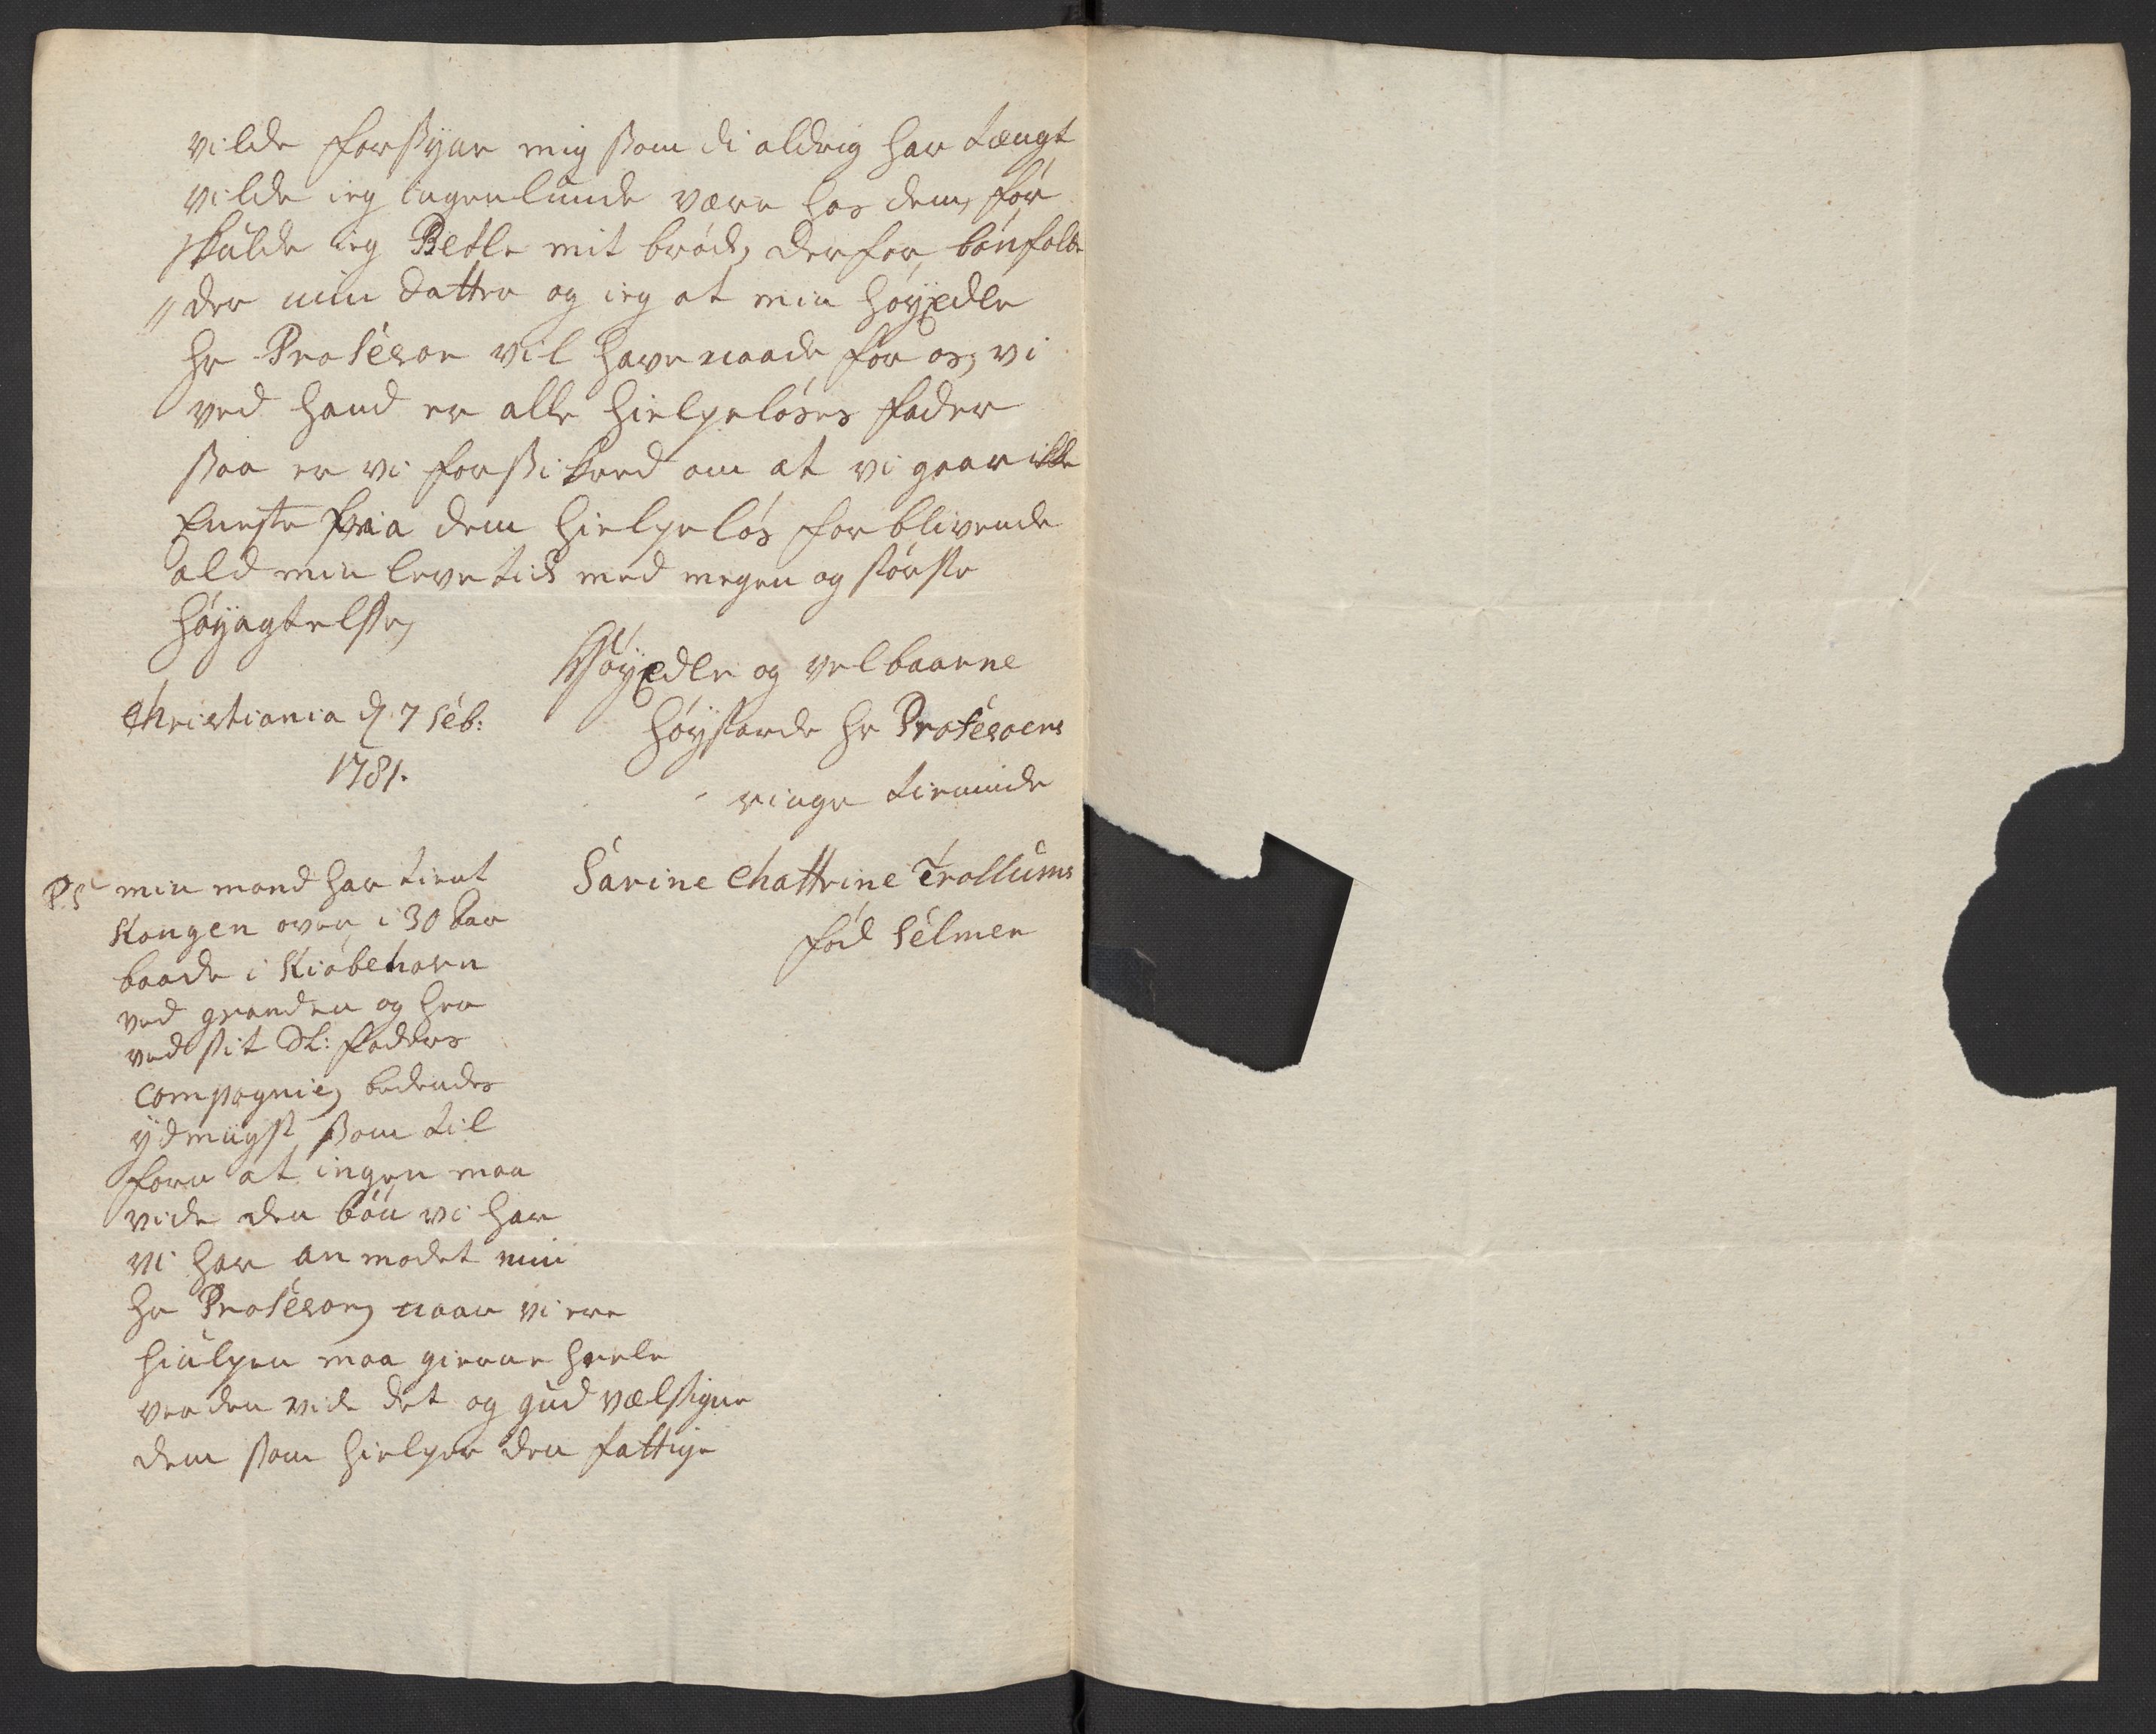 vilde forsyne mig som di aldrig har tængt
vilde ieg ingenlunde være hos dem, før
skulde ieg Betle mit brød, derfor bønfalde
„der min datter og ieg at min høyædle
hr Profesor vil have naade for os, vi
ved hand er alle hielpeløses fader
saa er vi forsikred om at vi gaar ikke
Eneste fra dem hielpeløs forblivende
ald min leve tid med megen og største
høyagtelse,
Høyædle og velbaarne
Christiania d 7 Feb:
høystærede hr Profesorens
1781.
ringe tienninde
Sarine Chattrine Trollums
fød Selmer
PS min mand har tient
Kongen over i 30 Aar
baade i Kiøbehavn
ved garden og her
ved sit Sl: faders
compagnie, bedendes
ydmügst som til
forn at ingen maa
vide den bøn vi har
vi har an modet min
hr Profesor, naar vi ere
hiulpen maa gierne heele
verden vide det og gud vælsigne
dem som hielper den fattige